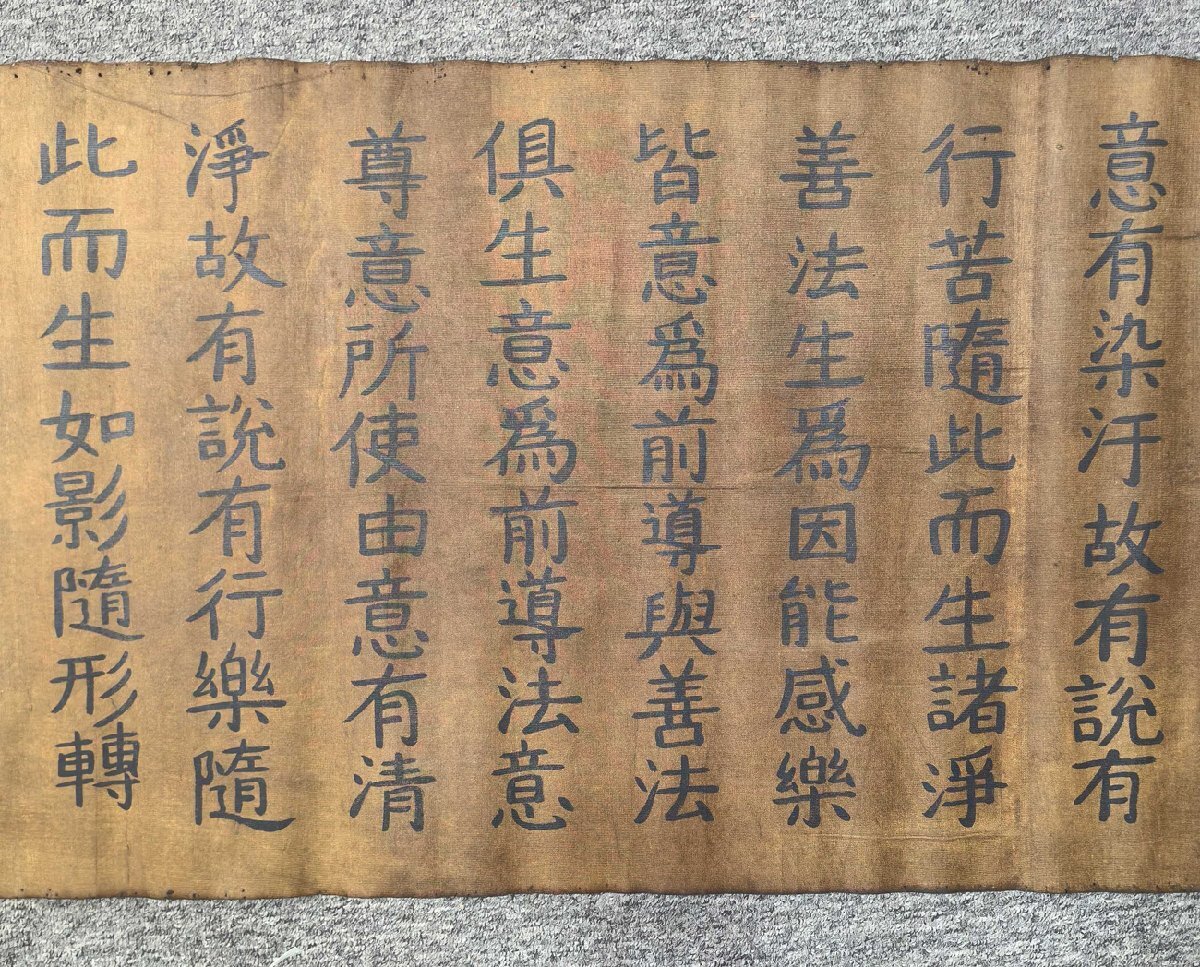 意有染汙故有說有
行苦隨此而生諸淨
善法生爲因能感樂
皆意爲前導與善法
俱生意爲前導法意
尊意所使由意有清
淨故有說有行樂隨
此而生如影隨形轉